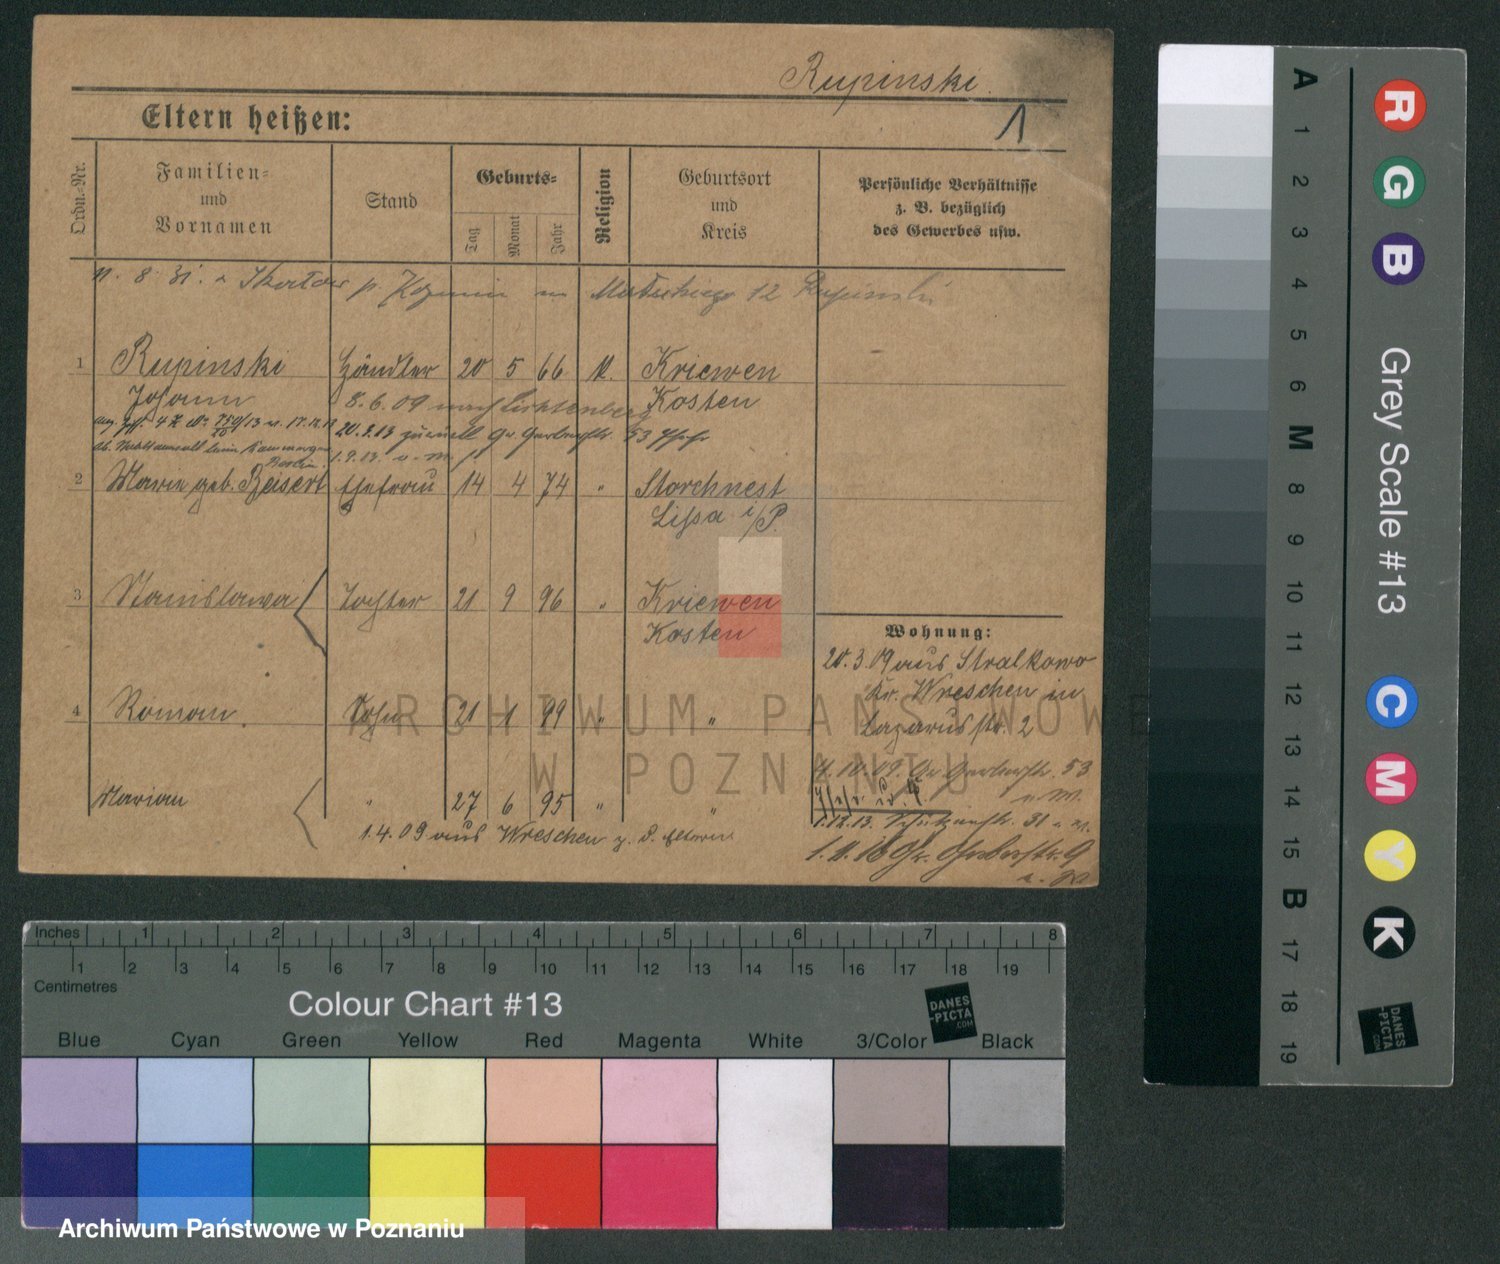 Rupinski
1
Eltern heißen:
Ordn.-Nr.
Familien-
und
Vornamen
Stand
Geburts-
Tag
Monat
Jahr
Religion
Geburtsort
und
Kreis
Persönliche Verhältnisse
z. B. bezüglich
des Gewerbes usw.
11. 8. 31. 12 Rupinski
1 Rupinski Händler 20 5 66 K. Kriewen
Johann Kosten
8.6.09 nach Lichtenberg
20.2.13 zurück Gr. Gerberstr. 53
1.9.13. u. m.
Berlin
2 Marie geb. Beisert Ehefrau 14 4 74 " Storchnest
Lissa i/P.
3 Stanislawa Tochter 21 9 96 " Kriewen
Kosten
Wohnung:
20.3.09 aus Stralkowo
Kr. Wreschen in
Lazarusstr. 2
4 Roman Sohn 21 1 99 " "
4.10.09. Gr. Gerberstr. 53
Marian " 27 6 95 " "
1.4.09 aus Wreschen z. d. Eltern
1.12.13. Schützenstr. 31
ARCHIWUM PAŃSTWOWE
W POZNANIU
Inches 1 2 3 4 5 6 7 8
1 2 3 4 5 6 7 8 9 10 11 12 13 14 15 16 17 18 19
Centimetres
Colour Chart #13
DANES
-PICTA
.COM
Blue Cyan Green Yellow Red Magenta White 3/Color Black
Archiwum Państwowe w Poznaniu
A 1 2 3 4 5 6 M 8 9 10 11 12 13 14 15 B 17 18 19
R G B
Grey Scale #13
C M Y K
DANES
-PICTA
.COM